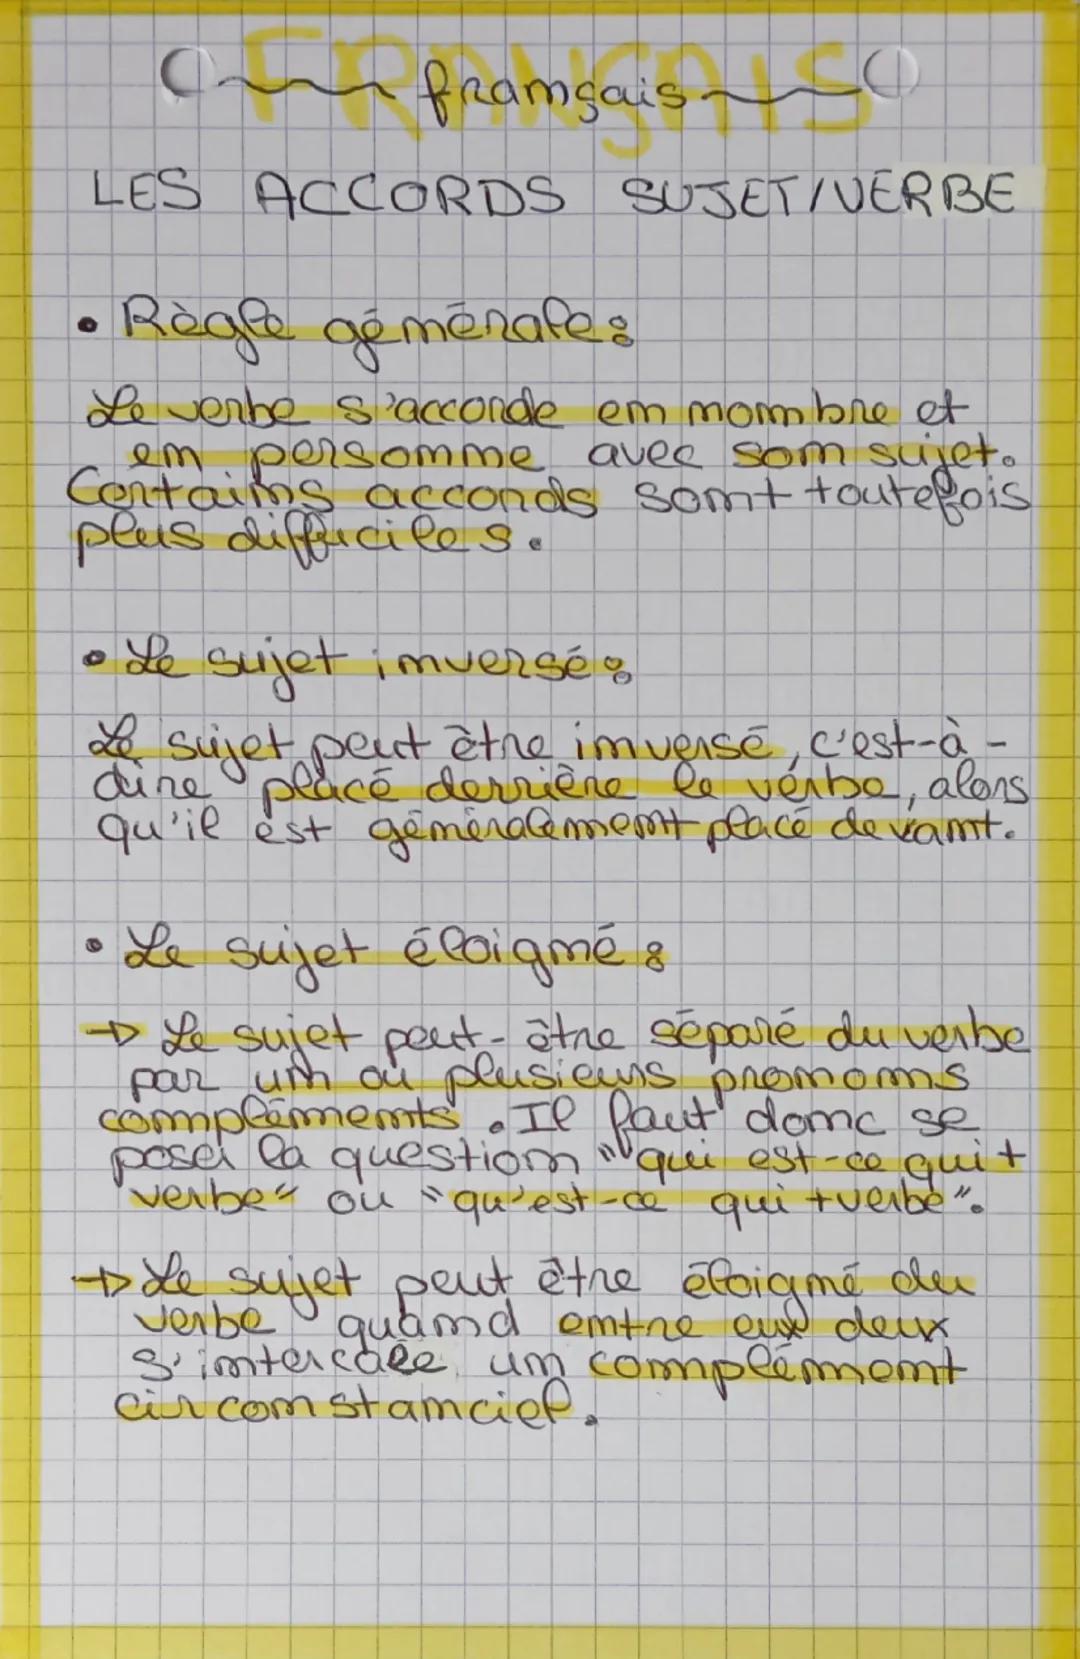 FRANÇAIS
français
LES ACCORDS SUJET/VERBE
• Règle générale :
Le verbe s'accorde en nombre et
en personne avec son sujet.
Certains accords sont toutefois
plus difficiles.
• Le sujet inversé :
Le sujet peut être inversé, c'est-à-
dire placé derrière le verbe, alors
qu'il est généralement placé devant.
• Le sujet éloigné :
→ Le sujet peut-être séparé du verbe
par un ou plusieurs pronoms
compléments. Il faut donc se
poser la question "qui est-ce qui +
verbe" ou "qu'est-ce qui + verbe".
→ Le sujet peut être éloigné du
verbe quand entre eux deux
s'intercale un complément
circonstanciel.